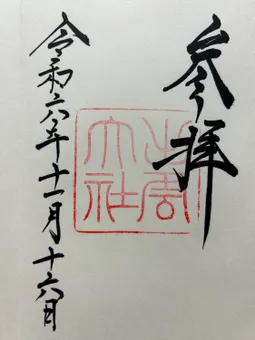 参拝
出雲大社
令和六年十一月十六日